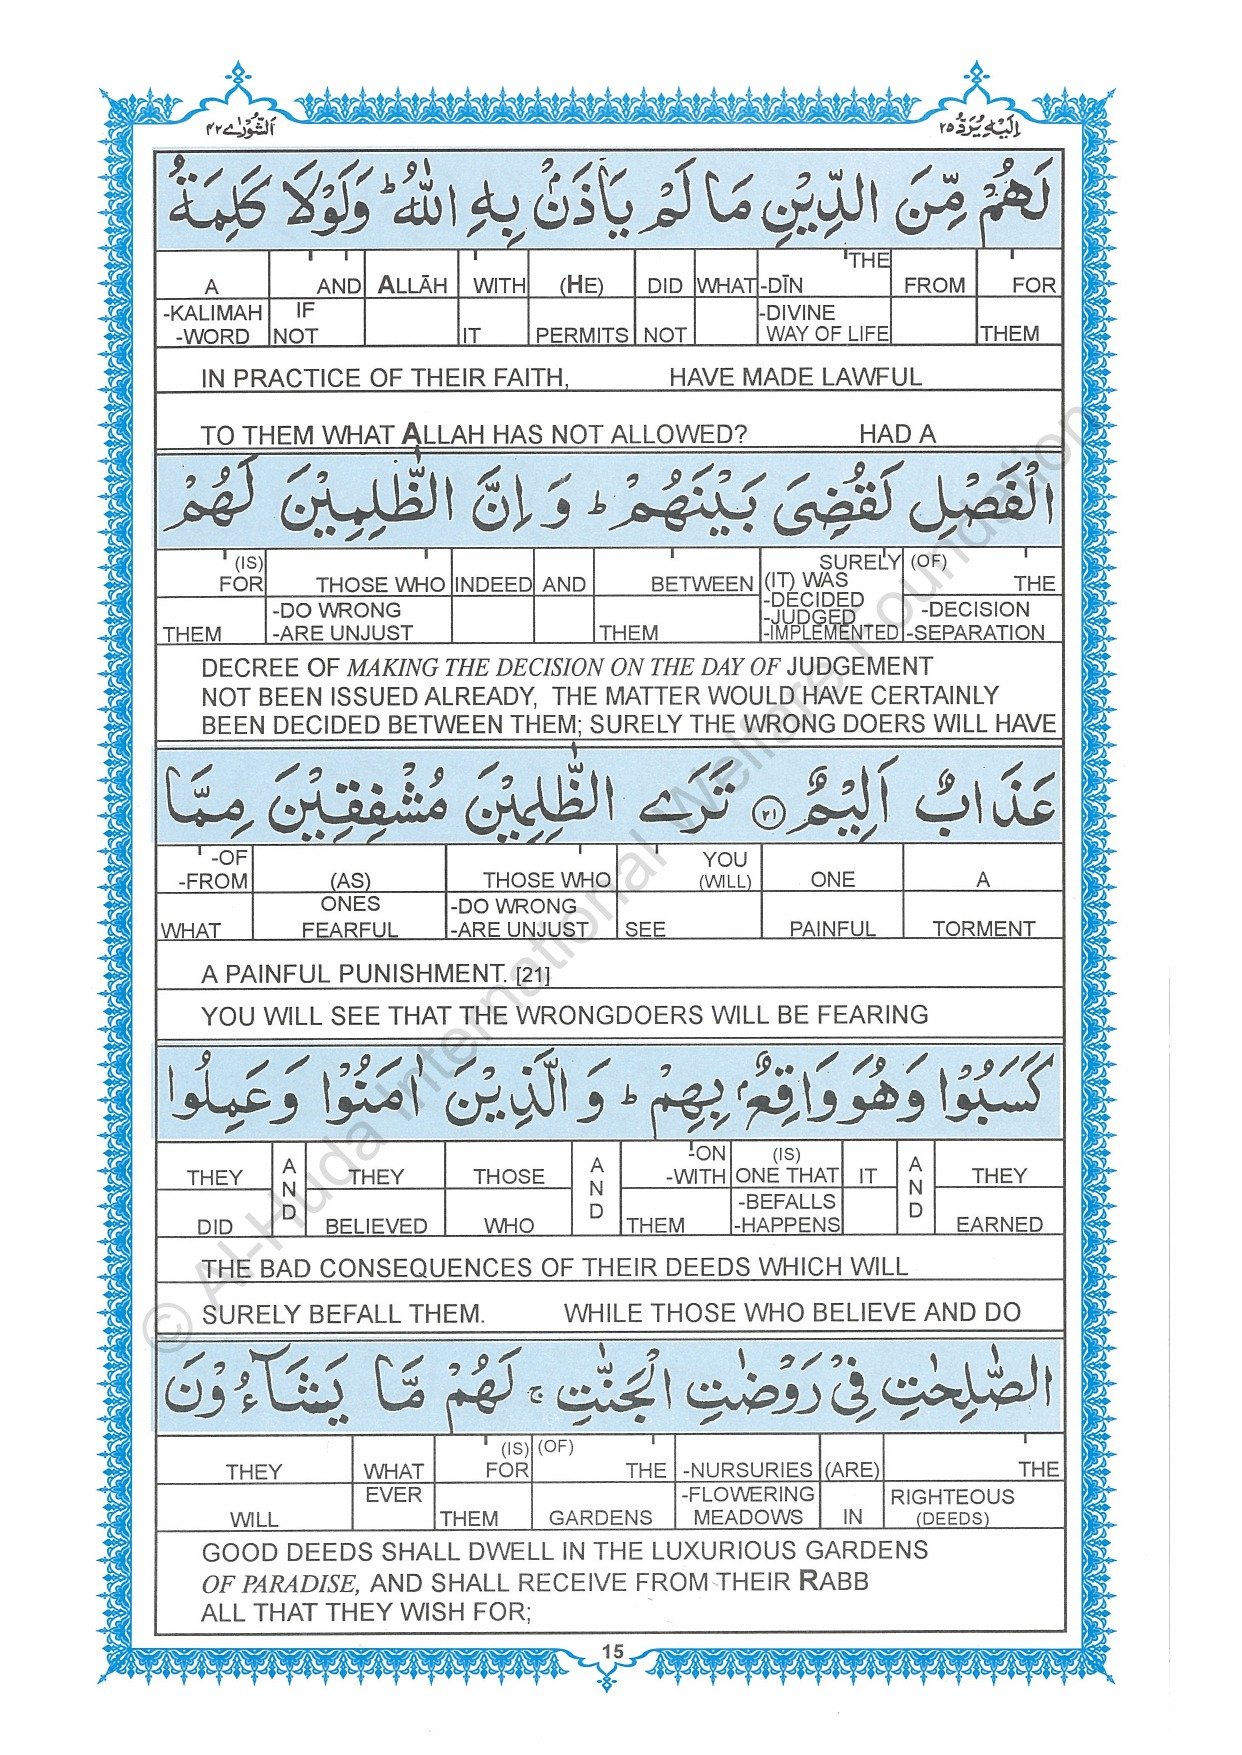 اَلشُّوْرٰے ۴۲
اِلَيْهِ يُرَدُّ ۲۵
لَهُمْ مِّنَ الدِّيْنِ مَا لَمْ يَاْذَنْۢ بِهِ اللّٰهُ ؕ وَلَوْلَا كَلِمَةُ
A AND ALLĀH WITH (HE) DID WHAT -DĪN THE FROM FOR
-KALIMAH -WORD IF NOT IT PERMITS NOT -DIVINE WAY OF LIFE THEM
IN PRACTICE OF THEIR FAITH, HAVE MADE LAWFUL
TO THEM WHAT ALLAH HAS NOT ALLOWED? HAD A
الْفَصْلِ لَقُضِيَ بَيْنَهُمْ ؕ وَ اِنَّ الظّٰلِمِيْنَ لَهُمْ
(IS) FOR THOSE WHO INDEED AND BETWEEN SURELY (IT) WAS (OF) THE
THEM -DO WRONG -ARE UNJUST THEM -DECIDED -JUDGED -IMPLEMENTED -DECISION -SEPARATION
DECREE OF MAKING THE DECISION ON THE DAY OF JUDGEMENT
NOT BEEN ISSUED ALREADY, THE MATTER WOULD HAVE CERTAINLY
BEEN DECIDED BETWEEN THEM; SURELY THE WRONG DOERS WILL HAVE
عَذَابٌ اَلِيْمٌ ۲۱ تَرَے الظّٰلِمِيْنَ مُشْفِقِيْنَ مِمَّا
-OF -FROM (AS) THOSE WHO YOU (WILL) ONE A
WHAT ONES FEARFUL -DO WRONG -ARE UNJUST SEE PAINFUL TORMENT
A PAINFUL PUNISHMENT. [21]
YOU WILL SEE THAT THE WRONGDOERS WILL BE FEARING
كَسَبُوْا وَهُوَ وَاقِعٌۢ بِهِمْ ؕ وَ الَّذِيْنَ اٰمَنُوْا وَعَمِلُوا
THEY AND THEY THOSE AND -ON -WITH (IS) ONE THAT IT AND THEY
DID BELIEVED WHO THEM -BEFALLS -HAPPENS EARNED
THE BAD CONSEQUENCES OF THEIR DEEDS WHICH WILL
SURELY BEFALL THEM. WHILE THOSE WHO BELIEVE AND DO
الصّٰلِحٰتِ فِيْ رَوْضٰتِ الْجَنّٰتِ ۚ لَهُمْ مَّا يَشَآءُوْنَ
THEY WHAT (IS) FOR (OF) THE -NURSURIES (ARE) THE
WILL EVER THEM GARDENS -FLOWERING MEADOWS IN RIGHTEOUS (DEEDS)
GOOD DEEDS SHALL DWELL IN THE LUXURIOUS GARDENS
OF PARADISE, AND SHALL RECEIVE FROM THEIR RABB
ALL THAT THEY WISH FOR;
15
© Al-Huda International Welfare Foundation